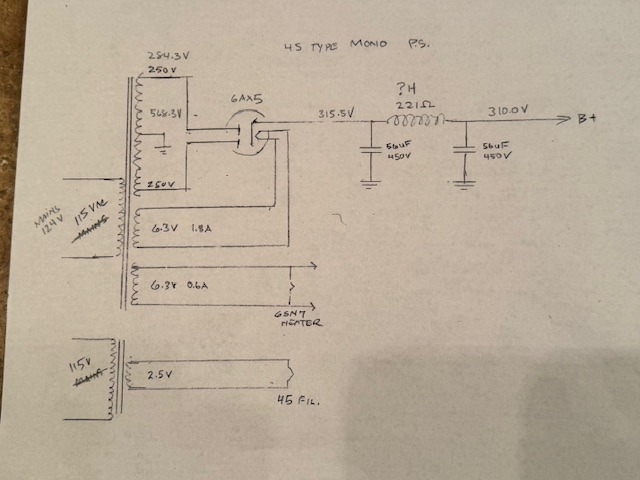 45 TYPE MONO P.S.
284.3V
250V
568.3V
6AX5
315.5V
?H
221Ω
310.0V
B+
56uF
450V
56uF
450V
250V
MAINS
124V
115VAC
MAINS
6.3V 1.8A
6.3V 0.6A
6SN7
HEATER
115V
2.5V
45 FIL.